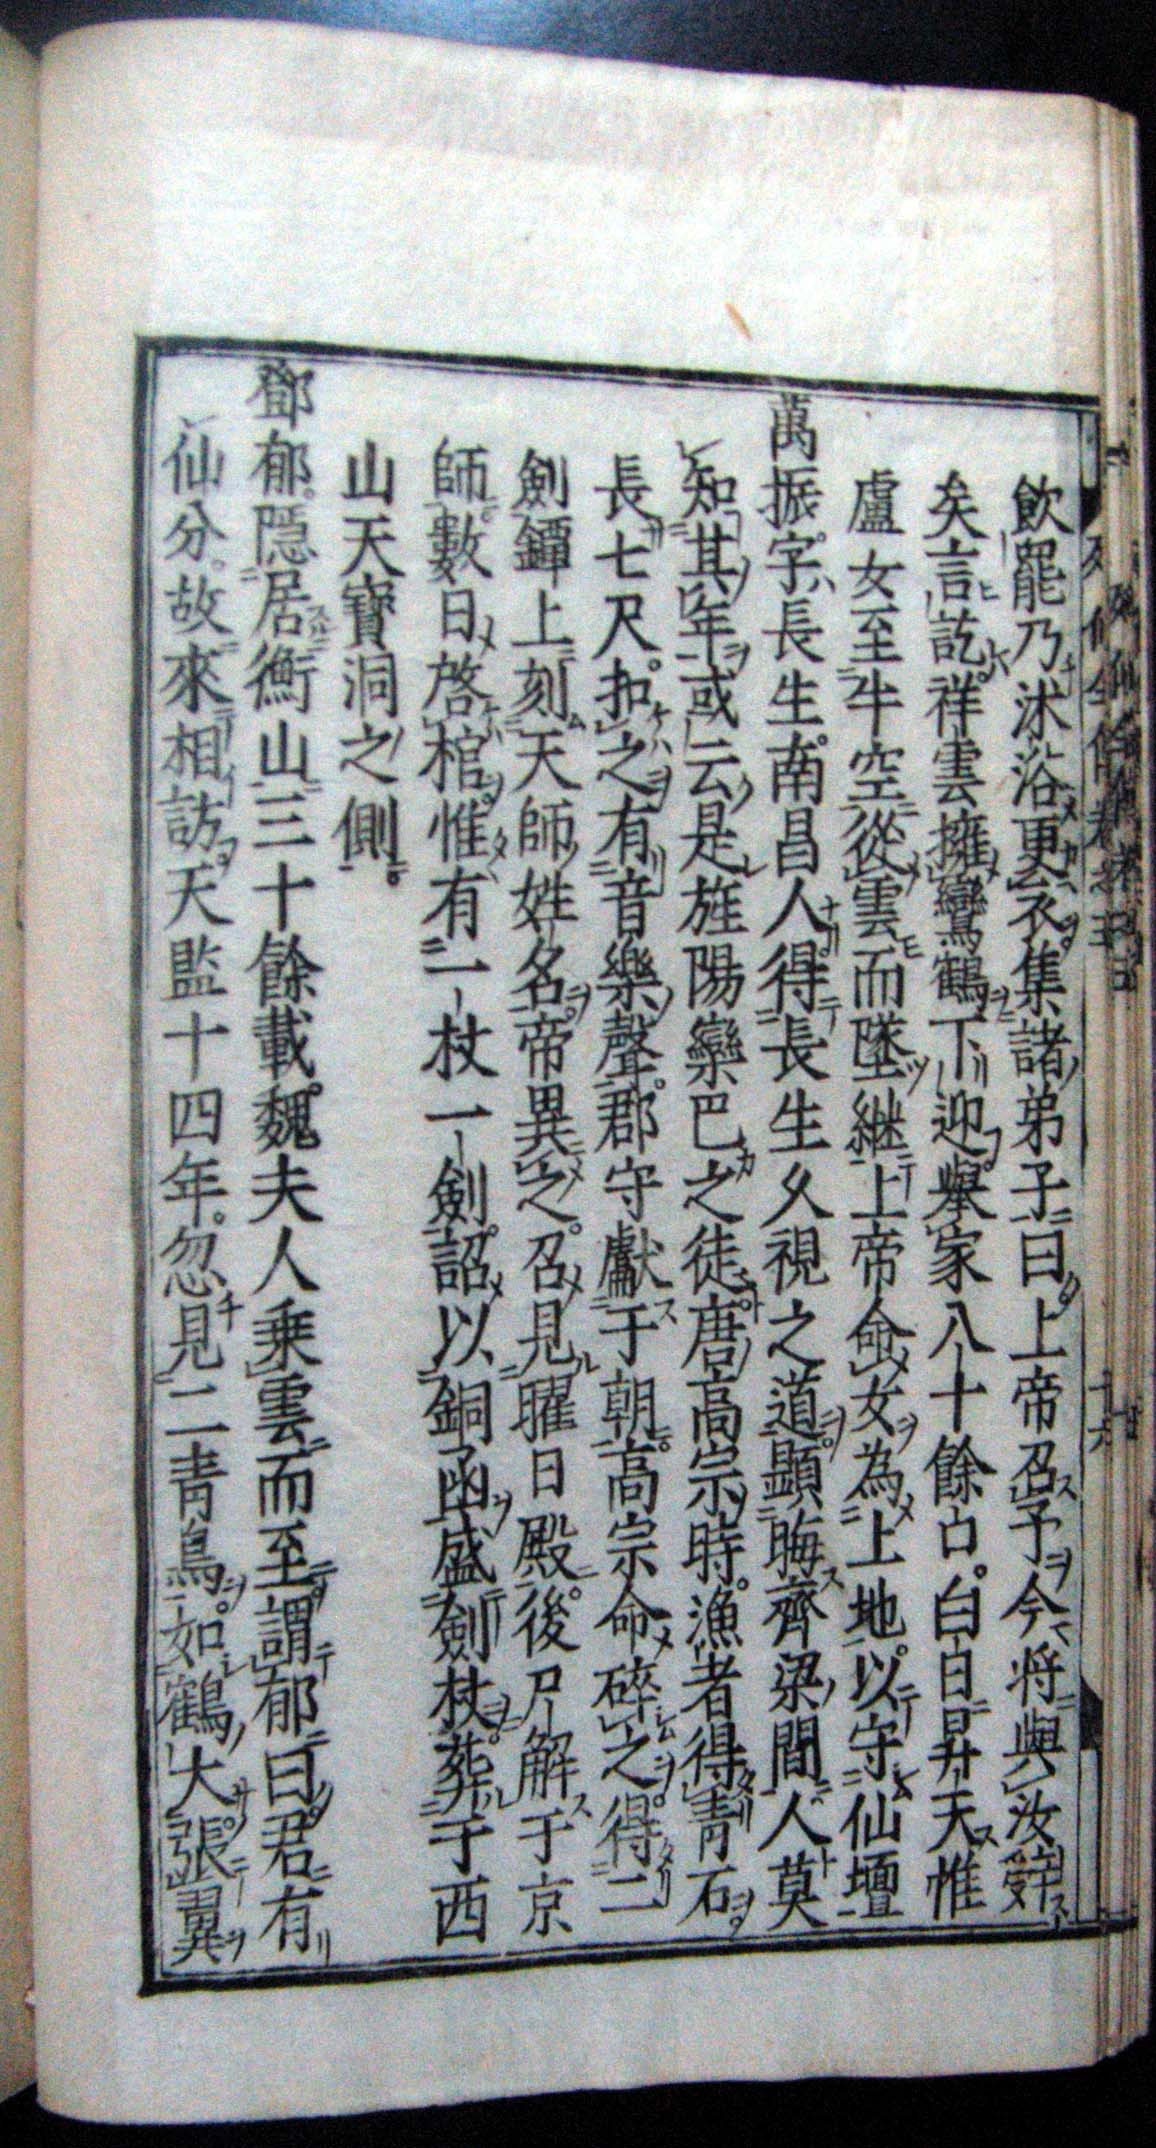 飲罷乃沐浴更衣集諸弟子曰上帝召予今將與汝辭
矣言訖祥雲擁鸞鶴下迎舉家八十餘口白日昇天惟
盧女至半空從雲而墜繼上帝命女為上地以守仙壇
萬振字長生南昌人得長生久視之道顯晦齊梁間人莫
知其年或云是旌陽欒巴之徒唐高宗時漁者得青石
長七尺扣之有音樂聲郡守獻于朝高宗命碎之得二
劍鐔上刻天師姓名帝異之召見曜日殿後尸解于京
師數日啓棺惟有一杖一劍詔以銅函盛劍杖葬于西
山天寶洞之側
鄧郁隠居衡山三十餘載魏夫人乗雲而至謂郁曰君有
仙分故來相訪天監十四年忽見二青鳥如鶴大張翼